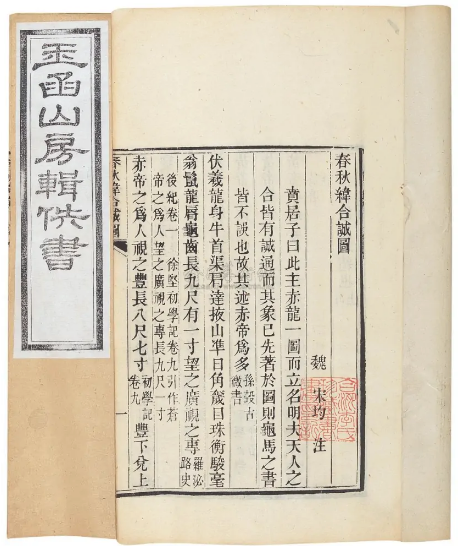 玉函山房輯佚書
春秋緯合誠圖
魏 宋均 注
賁居子曰此主赤龍一圖而立名明夫天人之
合皆有誠通而其象已先著於圖則龜馬之書
皆不誣也故其述赤帝爲多孫瑴古微書
伏羲龍身牛首渠肩達掖山準日角奯目珠衡駿毫
翁鬛龍脣龜齒長九尺有一寸望之廣視之專羅泌路史
後紀卷一 徐堅初學記卷九引作蒼
帝之爲人望之廣視之專長九尺一寸
赤帝之爲人視之豐長八尺七寸初學記卷九豐下兌上
春秋緯合誠圖
一